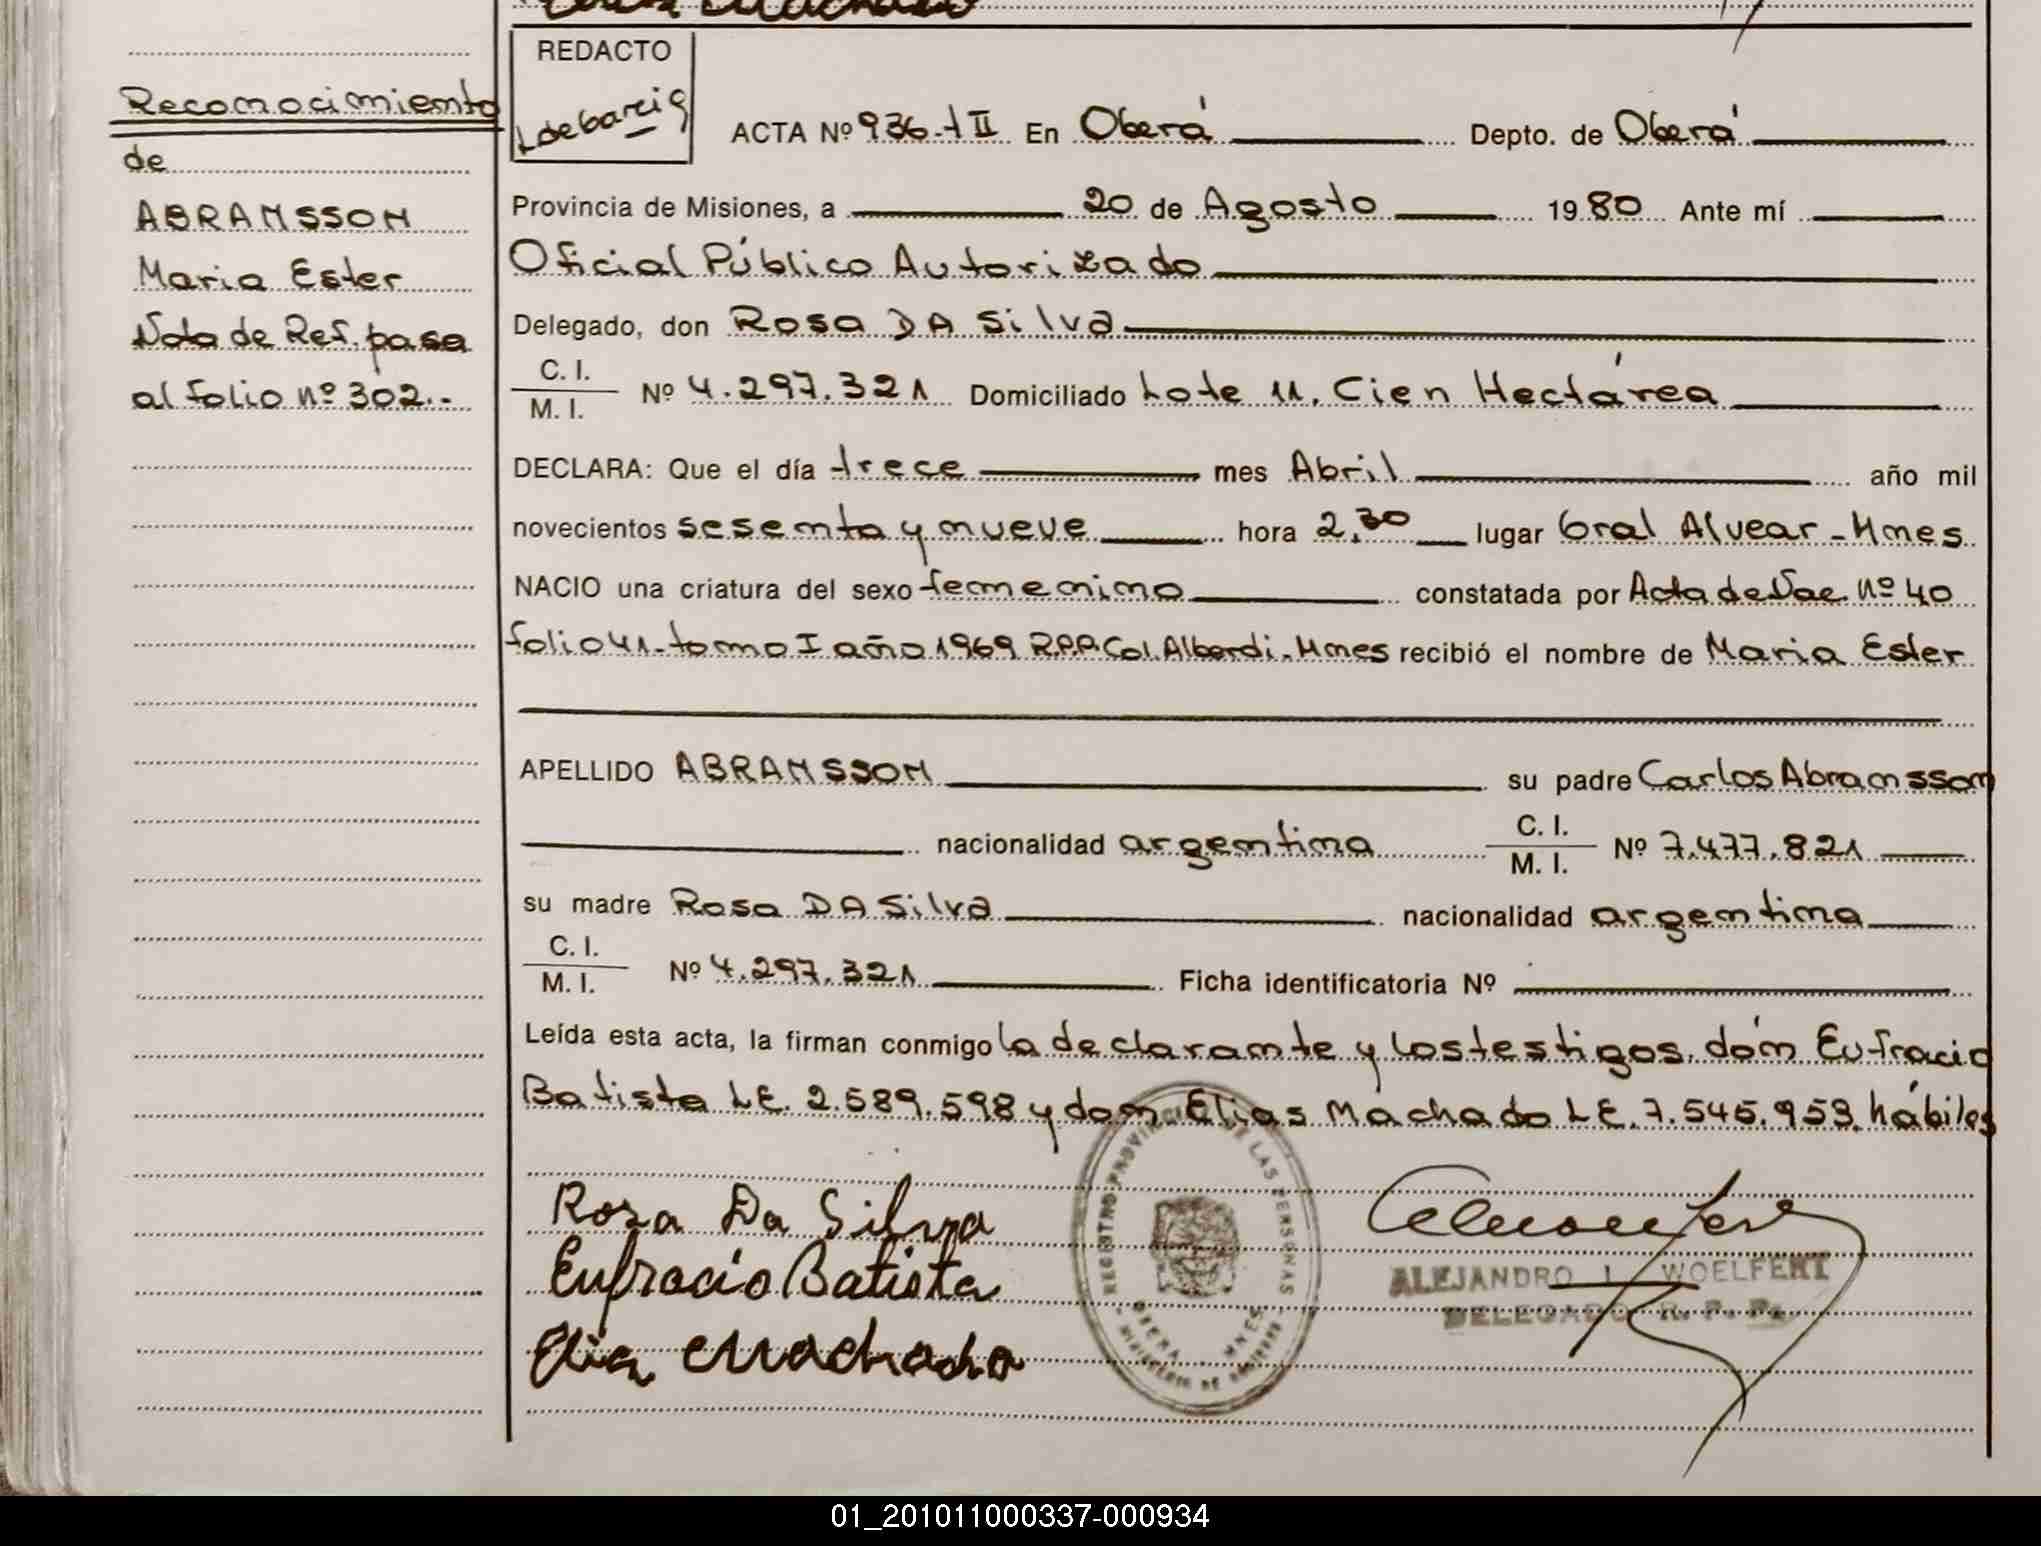 Reconocimiento
de
ABRAMSSON
Maria Ester
Nota de Ref. pasa
al folio nº 302.-
REDACTO
ACTA Nº 936-tII En Oberá Depto. de Oberá
Provincia de Misiones, a 20 de Agosto 1980 Ante mí
Oficial Público Autorizado
Delegado, don Rosa DA Silva
C. I.
M. I. Nº 4.297.321 Domiciliado Lote 11. Cien Hectárea
DECLARA: Que el día trece mes Abril año mil
novecientos sesenta y nueve hora 2,30 lugar Gral Alvear-Mnes
NACIO una criatura del sexo femenino constatada por Acta de Nac. nº 40
folio 41-tomo I año 1969 R.P.P. Col. Alberdi. Mnes recibió el nombre de Maria Ester
APELLIDO ABRAMSSON su padre Carlos Abramsson
nacionalidad argentina C. I.
M. I. Nº 7.477.821
su madre Rosa DA Silva nacionalidad argentina
C. I.
M. I. Nº 4.297.321 Ficha identificatoria Nº
Leída esta acta, la firman conmigo la declarante y los testigos. dón Eufracio
Batista L.E. 2.589.598 y don Elias Machado L.E. 7.545.953. hábiles
Rosa Da Silva
Eufracio Batista
Elia Machado
REGISTRO PROVINCIAL DE LAS PERSONAS
OBERA MNES
MINISTERIO DE GOBIERNO
ALEJANDRO L. WOELFERT
DELEGADO R. P. P.
01_201011000337-000934